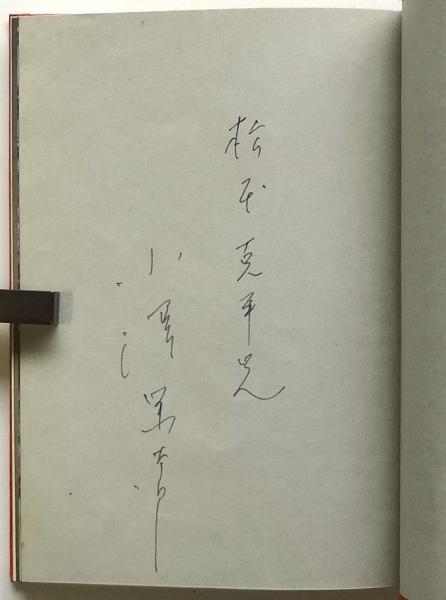 松本克平兄
小澤栄太郎